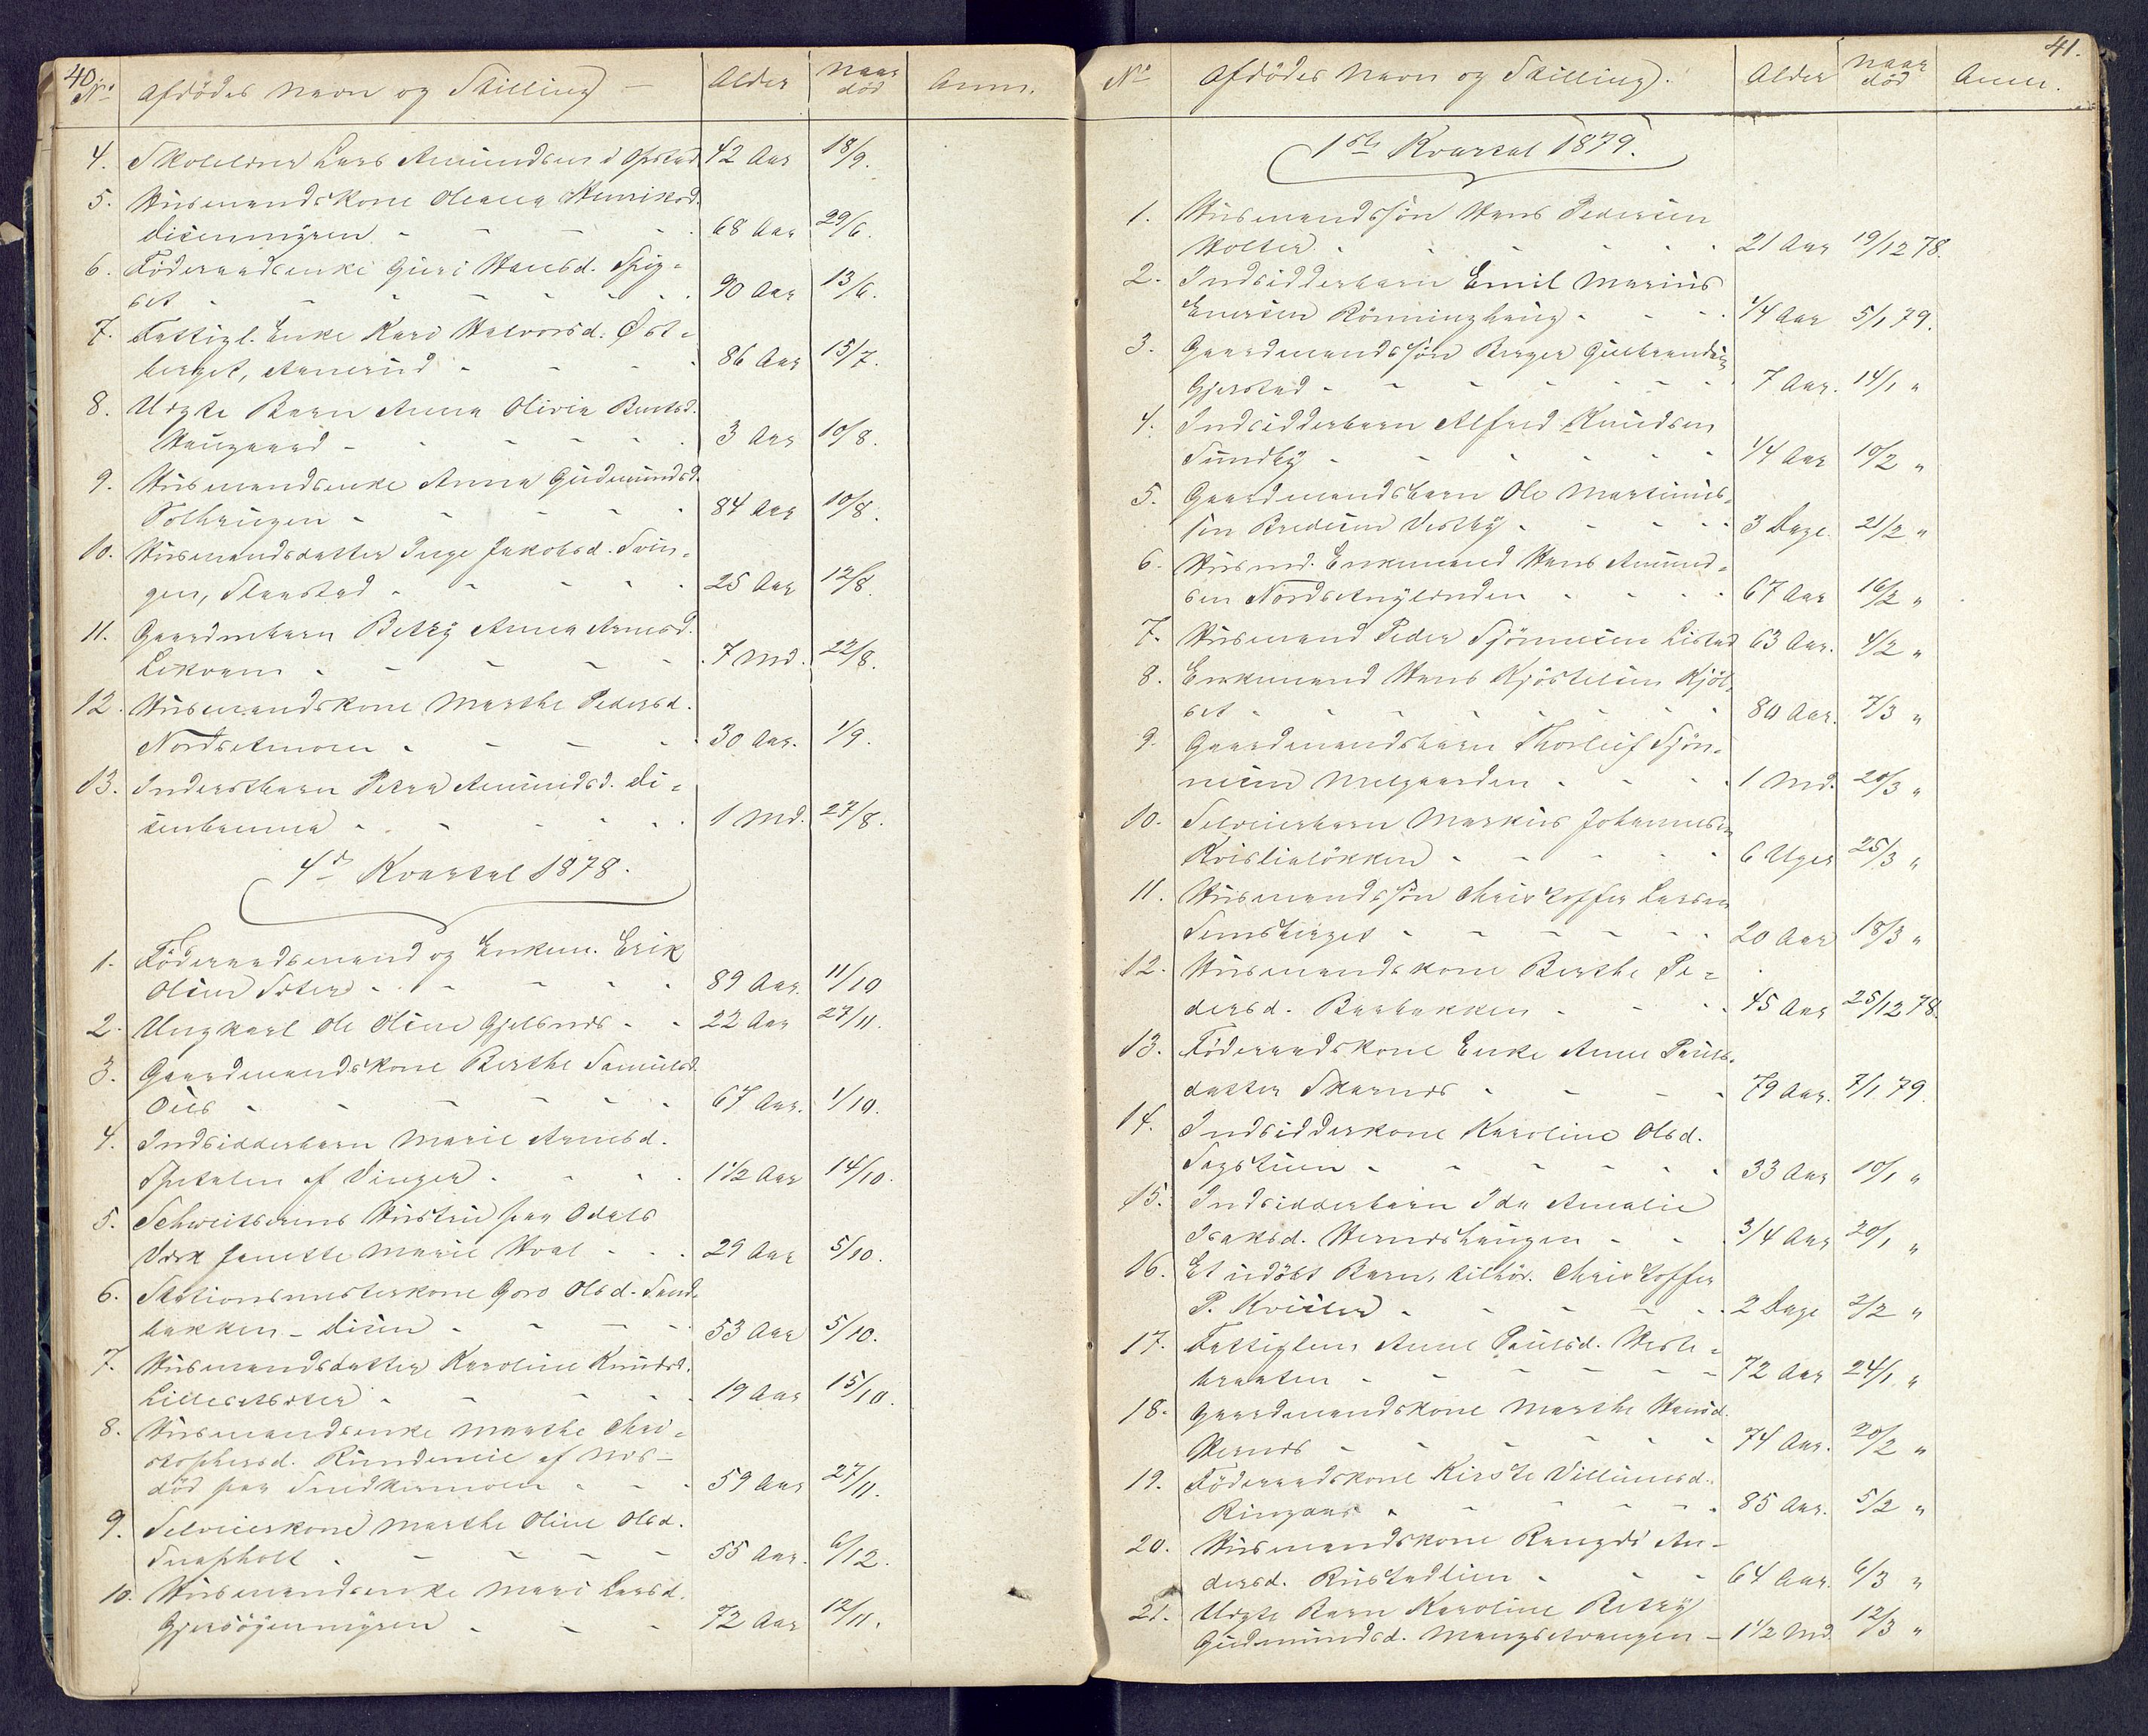 40.
No Afdödes Navn og Stilling Alder Naar död Anm.
4. Skolelærer Lars Amundsen i Opstad 42 Aar 18/9.
5. Husmandskone Oleana Henriksd.
Disenmyren 68 Aar 29/6.
6. Föderaadsenke Guri Hansd. Spig-
set 90 Aar 13/6.
7. Fattigl. Enke Kari Halvorsd. Öst-
berget, Arnerud 86 Aar 15/7.
8. Uægte Barn Anna Olivia Berntsd.
Haugaard 3 Aar 10/8.
9. Husmandsenke Anna Gudmundsd.
Tolhaugen 84 Aar 10/8.
10. Husmandsdatter Inge Jakobsd. Svin-
gen, Skaarstad 25 Aar 12/8.
11. Gaardmbarn Betzy Anna Arnesd.
Lekvam 7 Md. 22/8.
12. Husmandskone Marthe Pedersd.
Nordsetmoen 30 Aar. 1/9.
13. Inderstbarn Petra Amundsd. Di-
senbenna 1 Md. 27/8.
4de Kvartal 1878.
1. Föderaadsmand og Enkem. Erik
Olsen Sæter 89 Aar. 11/10
2. Ungkarl Ole Olsen Gjelsnæs 22 Aar 27/11.
3. Gaardmandskone Berthe Samuelsd.
Ouls 67 Aar. 1/10.
4. Indsidderbarn Marie Arnesd.
Spetalen af Vinger 1 1/2 Aar 14/10.
5. Schweitserens Hustru paa Odals
Værk Janette Marie Hoel 29 Aar 5/10.
6. Stationsmesterkone Goro Olsd. Sand-
bakken - Disen 53 Aar 5/10.
7. Husmandsdatter Karoline Knudsd.
Lillesetsæter 19 Aar 15/10.
8. Husmandsenke Marthe Chri-
stophersd. Rundmeie af Næs -
död paa Sandkermoen 59 Aar 27/11.
9. Selveierkone Marthe Oline Olsd.
Snapholt 55 Aar. 6/12.
10. Husmandsenke Mari Larsd.
Gjersöyenmyren 72 Aar 12/11.
41.
No Afdödes Navn og Stilling. Alder Naar död Anm.
1ste Kvartal 1879.
1. Husmandssön Hans Pedersen
Holter 21 Aar 19/12 78.
2. Indsidderbarn Emil Marius
Enersen Rönninghaug 1/4 Aar 5/1 79.
3. Gaardmandssön Birger Gulbrandsen
Gjerstad 7 Aar. 14/1 "
4. Indsidderbarn Alfred Knudsen
Sundby 1/4 Aar 10/2 "
5. Gaardmandsbarn Ole Martinius-
sen Bredesen Vestby 3 Dage 21/2 "
6. Husmd. Enkemand Hans Amund-
sen Nordsetnylænden 67 Aar 16/2 "
7. Husmand Peder Sjönnesen Listad 63 Aar. 4/2 "
8. Enkemand Hans Kjöstelsen Kjöl-
set 80 Aar. 7/3 "
9. Gaardmandsbarn Thorleif Sjön-
nesen Melgaarden 1 Md. 20/3 "
10. Selveierbarn Markus Johannesen
Kvislerlökken 6 Uger 25/3 "
11. Husmandssön Christoffer Larsen
Semsberget 20 Aar 18/3 "
12. Husmandskone Berthe Pe-
dersd. Berbakken 45 Aar 25/12 78.
13. Föderaadskone Enke Anne Pouls-
datter Skarnæs 79 Aar. 7/1 79.
14. Indsidderkone Karoline Olsd.
Sagstuen 33 Aar 10/1 "
15. Indsidderbarn Ida Amalie
Isaksd. Hernæshaugen 3/4 Aar 20/1 "
16. Et udöbt Barn, tilhör. Christoffer
P. Kvisler 2 Dage 2/2 "
17. Fattiglem Anne Poulsd. Vesle-
braaten 72 Aar 24/1 "
18. Gaardmandskone Marthe Hansd.
Hernæs 74 Aar. 20/2 "
19. Föderaadskone Kirsti Villumsd.
Ringaas 85 Aar. 5/2 "
20. Husmandskone Rangdi An-
dersd. Rustadlien 64 Aar. 6/3 "
21. Uægte Barn Karoline Betzy
Gudmundsd. Mangsetvangen 1 1/2 Md. 12/3 "